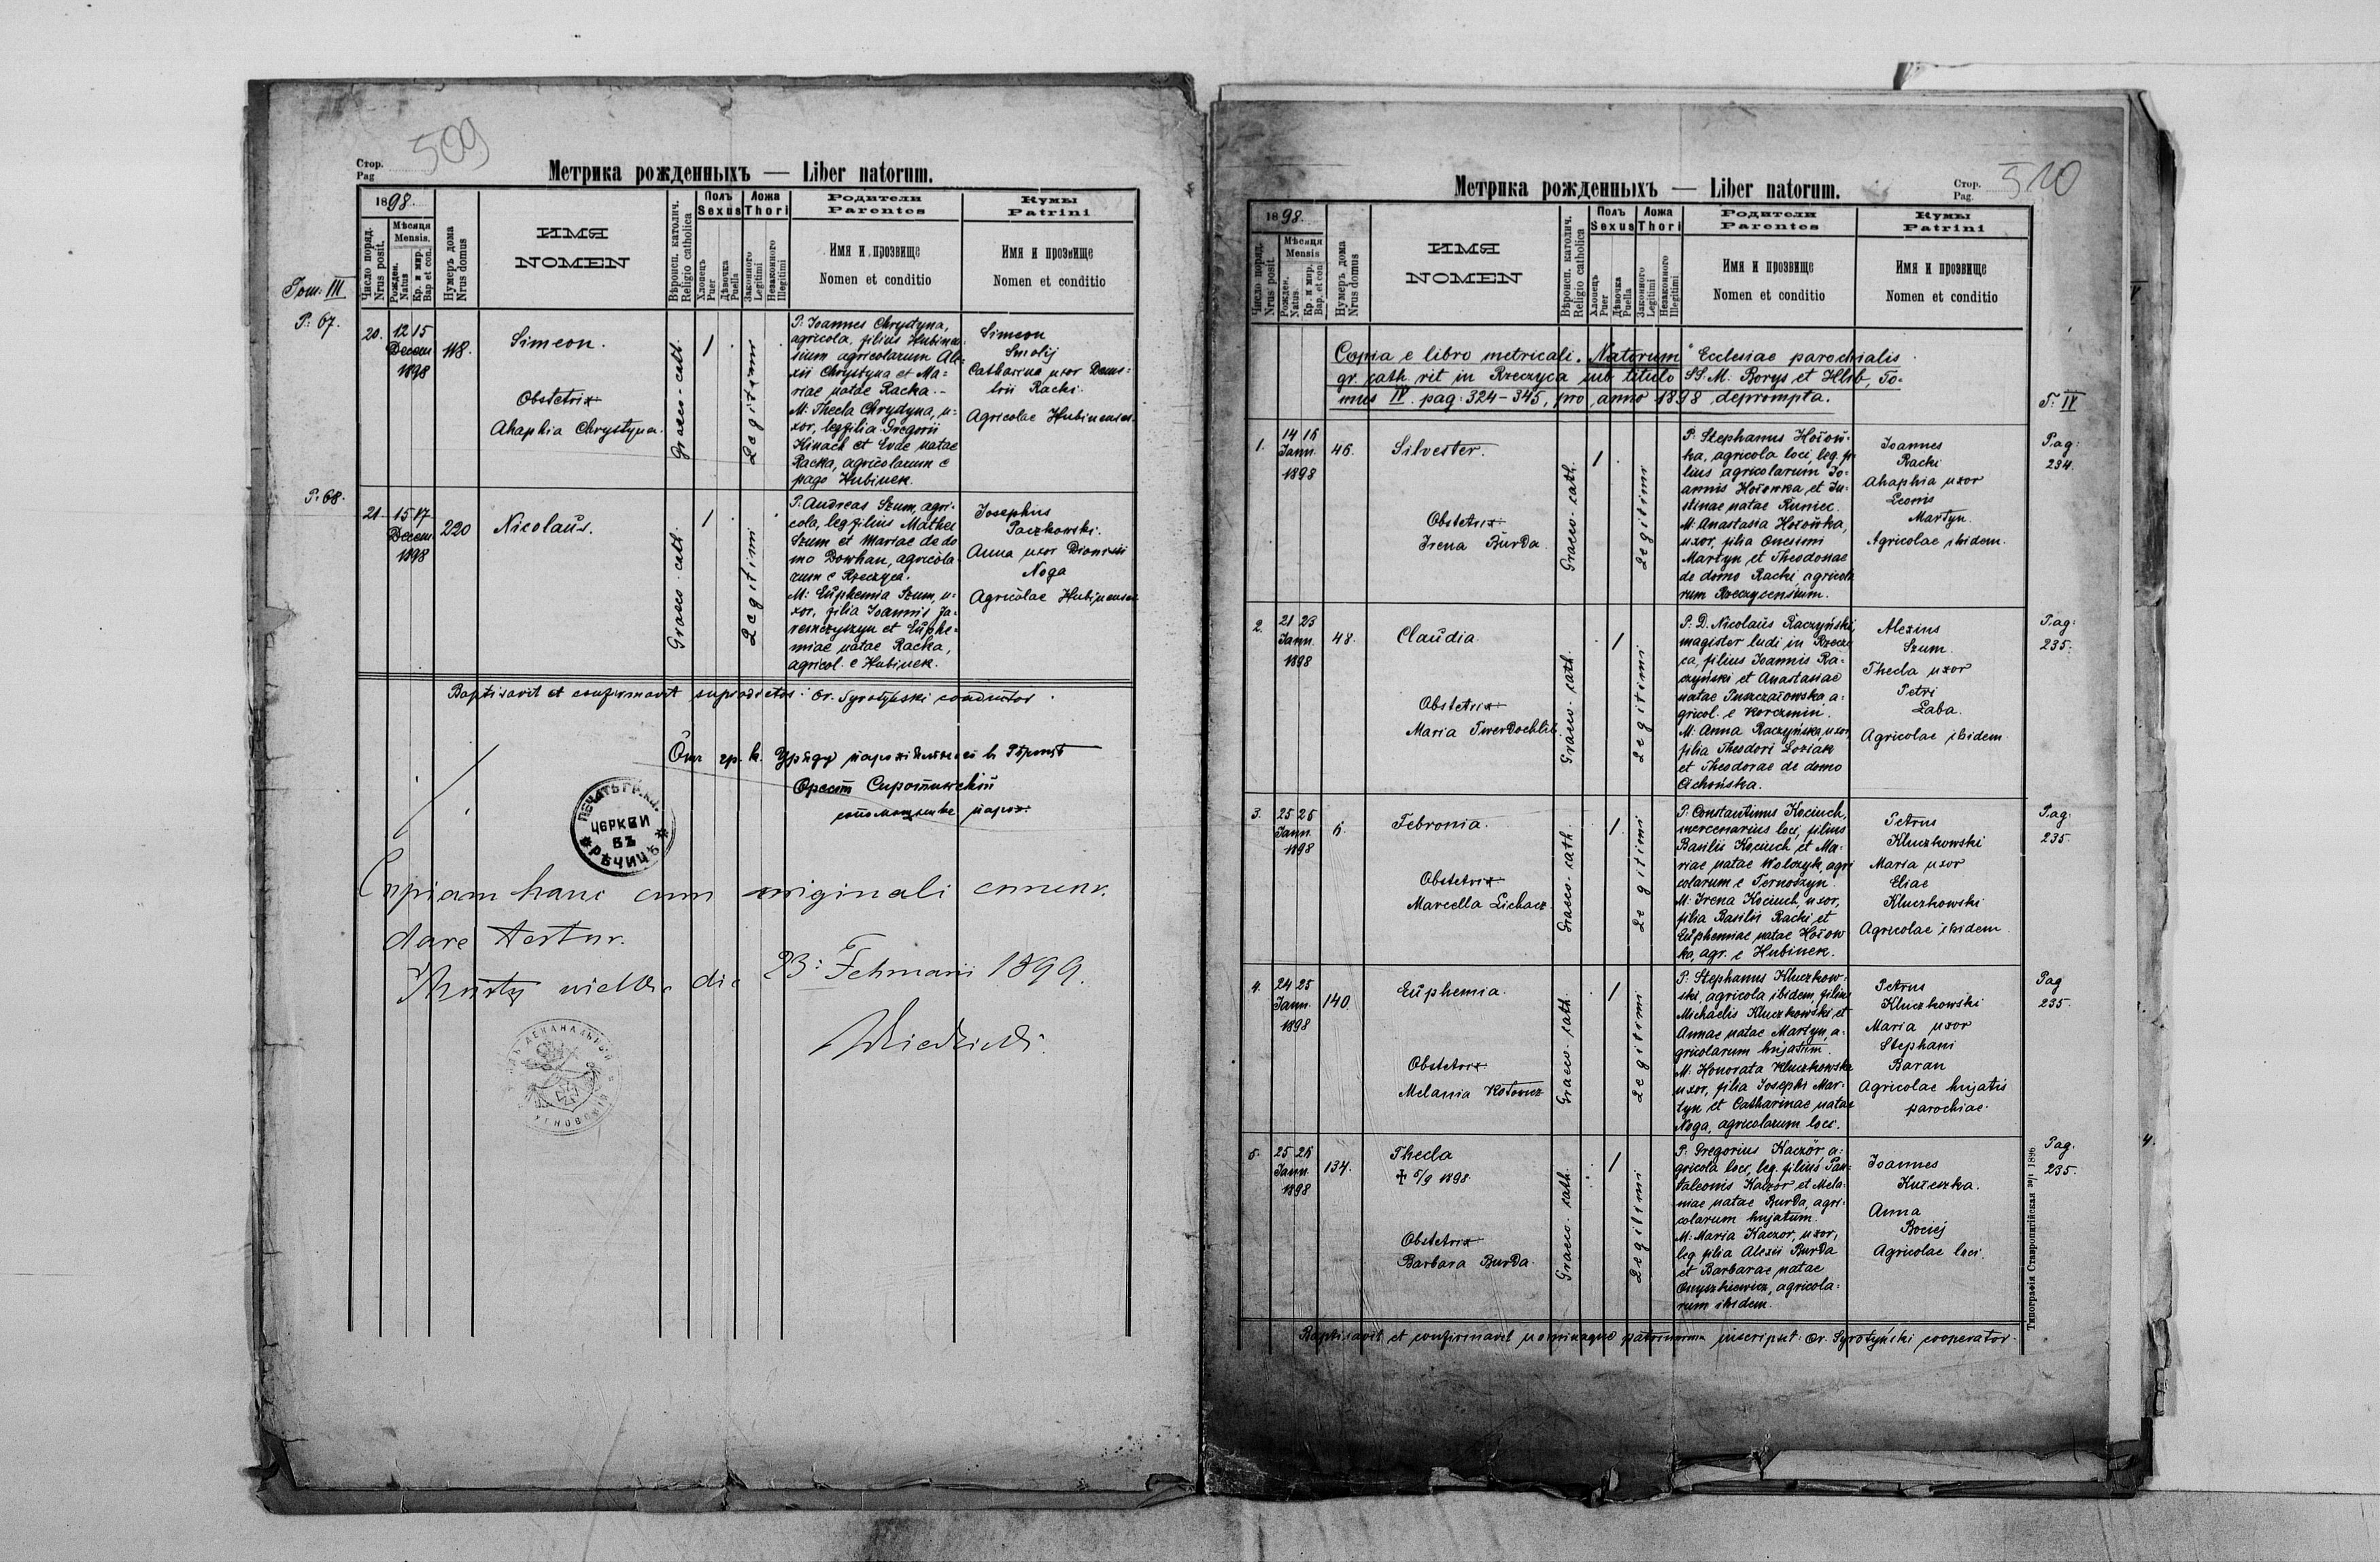 509
Стор.
Pag
Метрика рожденныхъ — Liber natorum.
1898.
Число поряд.
Nrus posit.
Мѣсяця
Mensis.
Рожден.
Natus
Кр. и мир.
Bap et con.
Нумеръ дома
Nrus domus
ИМЯ
NOMEN
Вѣроисп. католич.
Religio catholica
Полъ
Sexus
Хлопець
Puer
Дѣвочка
Puella
Ложа
Thori
Законного
Legitimi
Незаконного
Illegitimi
Родители
Parentes
Имя и прозвище
Nomen et conditio
Кумы
Patrini
Имя и прозвище
Nomen et conditio
Tom. III
P. 67.
20.
12 15
Decem
1898
118.
Simeon.
Obstetrix
Ahaphia Chrystyna.
Graeco-cath.
1
Legitimi
P: Joannes Chrystyna,
agricola, filius Hubinen
sium agricolarum Ale
xii Chrystyna et Ma=
riae natae Racka.-
M: Thecla Chrystyna, u=
xor, leg filia Gregorii
Hinach et Evae natae
Racka, agricolarum e
pago Hubinek.
Simeon
Smolij
Catharina uxor Deme=
trii Racki.
Agricolae Hubinenses.
P: 68.
21.
15 17
Decem
1898
220
Nicolaus.
Graeco-cath.
1
Legitimi
P: Andreas Szum, agri=
cola, leg filius Mathei
Szum et Mariae de do
mo Dowhan, agricola
rum e Rzeczyca.
M: Euphemia Szum, u=
xor, filia Joannis Ja=
remczyszyn et Euphe=
miae natae Racka,
agricol. e Hubinek.
Josephus
Paczkowski.
Anna uxor Dionisii
Noga
Agricolae Hubinenses
Baptisavit et confirmavit supradictos: Or. Syrotyński
Отъ гр. к. Уряду парохіяльного въ Рѣчицѣ
Орестъ Сиротинскій
ПЕЧАТЬ ГР. КАТ.
ЦЕРКВИ
ВЪ
РѢЧИЦѢ
Copiam hanc cum originali concor.
dare testur.
die 23: Februarii 1899.
510
Стор.
Pag.
Метрика рожденныхъ — Liber natorum.
1898.
Число поряд.
Nrus posit.
Мѣсяця
Mensis
Рожден.
Natus.
Кр. и мир.
Bap. et con
Нумеръ дома
Nrus domus
ИМЯ
NOMEN
Вѣроисп. католич.
Religio catholica
Полъ
Sexus
Хлопець
Puer
Дѣвочка
Puella
Ложа
Thori
Законного
Legitimi
Незаконного
Illegitimi
Родители
Parentes
Имя и прозвище
Nomen et conditio
Кумы
Patrini
Имя и прозвище
Nomen et conditio
Copia e libro metricali „Natorum" Ecclesiae parochialis
gr. cath. rit in Rzeczyca sub titulo SS. M: Borys et Hlib, To=
mus IV. pag: 324-345, pro anno 1898 deprompta.
T: IV
1.
14 16
Jann.
1898
46.
Silvester.
Obstetrix
Irena Burda
Graeco-cath.
1
Legitimi
P: Stephanus Hołow=
ka, agricola loci, leg. fi
lius agricolarum Jo=
annis Hołowka et Ju=
stinae natae Kuniec.
M: Anastasia Hołowka,
uxor, filia Onesimi
Martyn et Theodosiae
de domo Racki, agricola
rum Rzeczycensium.
Joannes
Racki
Ahaphia uxor
Leonis
Martyn.
Agricolae ibidem.
Pag:
234.
2.
21 23
Jann.
1898
48.
Claudia.
Obstetrix
Maria Twerdochlib
Graeco-cath.
1
Legitimi
P: D. Nicolaus Raczyński,
magister ludi in Rzeczy
ca, filius Joannis Ra=
czyński et Anastasiae
natae Puszczałowska a=
gricol. e Korczmin.
M: Anna Raczyńska uxor
filia Theodori Loziak
et Theodorae de domo
Cichońska.
Alexius
Szum.
Thecla uxor
Petri
Łaba.
Agricolae ibidem
Pag:
235.
3.
25 26
Jann.
1898
6.
Febronia.
Obstetrix
Marcella Lichacz.
Graeco-cath.
1
Legitimi
P: Constantinus Kociuch,
mercenarius loci, filius
Basilii Kociuch et Ma=
riae natae Wolczyk, agri
colarum e Ternoszyn.
M: Irena Kociuch, uxor,
filia Basilii Racki et
Euphemiae natae Hołow
ka, agr. e Hubinek.
Petrus
Kluczkowski
Maria uxor
Eliae
Kluczkowski
Agricolae ibidem.
Pag:
235.
4.
24 25
Jann.
1898
140.
Euphemia.
Obstetrix
Melania Kotowicz
Graeco-cath.
1
Legitimi
P: Stephanus Kluczkow=
ski, agricola ibidem, filius
Michaelis Kluczkowski et
Annae natae Martyn, a=
gricolarum hujatum.
M: Honorata Kluczkowska
uxor, filia Josephi Mar=
tyn et Catharinae natae
Noga, agricolarum loci.
Petrus
Kluczkowski
Maria uxor
Stephani
Baran
Agricolae hujatis
parochiae.
Pag
235.
5.
25 26
Jann.
1898
134.
Thecla
+ 5/9 1898.
Obstetrix
Barbara Burda.
Graeco-cath.
1
Legitimi
P: Gregorius Kaczór, a=
gricola loci, leg. filius Pan=
taleonis Kaczór et Mela=
niae natae Burda, agri=
colarum hujatum.
M: Maria Kaczor, uxor,
leg filia Alexii Burda
et Barbarae natae
Onyszkiewicz, agricola=
rum ibidem.
Joannes
Kułeczka.
Anna
Bociej
Agricolae loci.
Pag.
235.
4.
Baptisavit et confirmavit nominaque patrinorum inscripsit: Or. Syrotyński cooperator.
Типографія Ставропигійская 1896